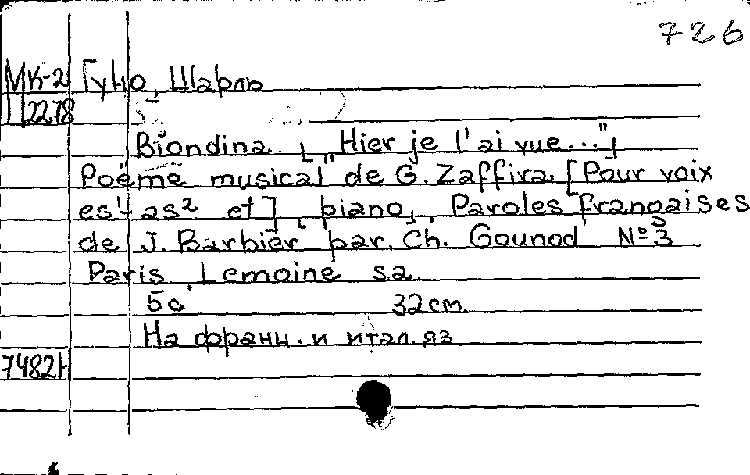 726
МК-2 Гуно, Шарль
II 2278
Biondina [„Hier je l'ai vue..."]
Poëme musical de G. Zaffira. [Pour voix
es¹-as² et], piano, Paroles françaises
de J. Barbier par Ch. Gounod Nº 3
Paris Lemoine s.a.
5 с 32 cm.
На франц. и итал. яз